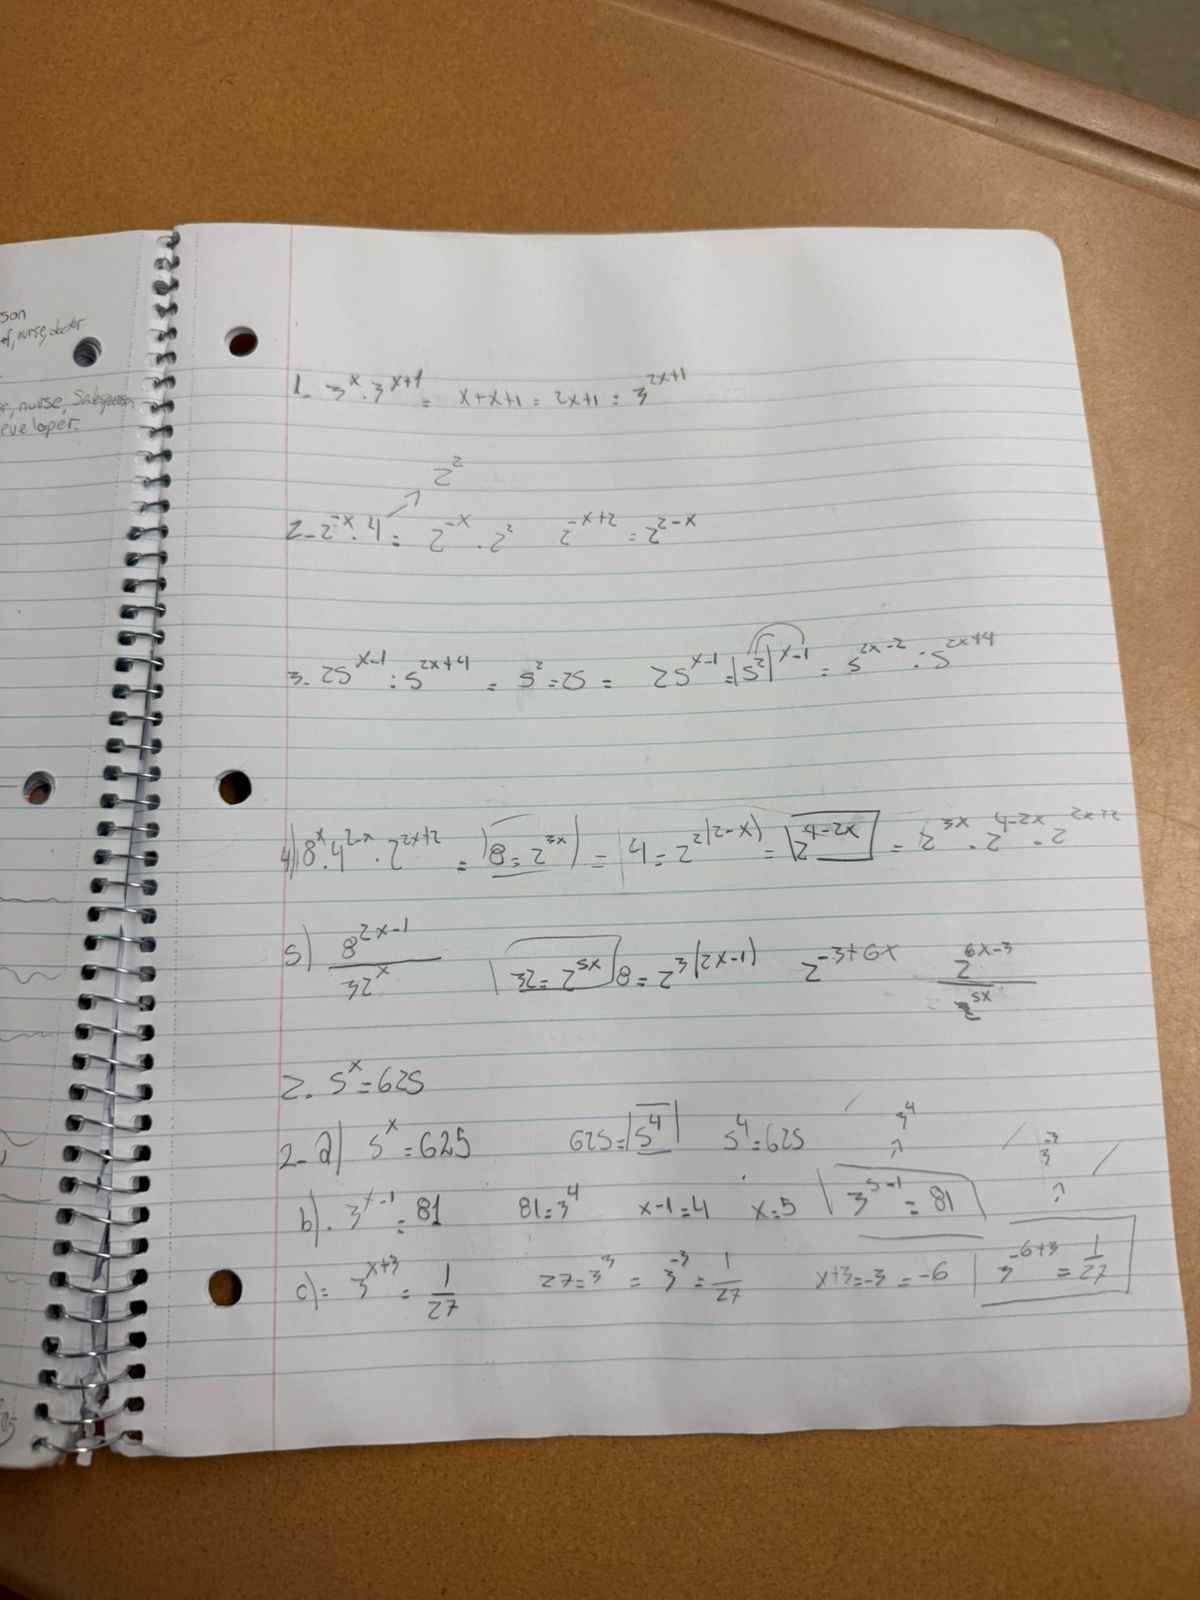 son
ef, nurse, doctor
er, nurse, Salesperson
eveloper.
1- 3^x · 3^x+1 = x+x+1 = 2x+1 = 3^2x+1
2^2
2- 2^-x · 4 = 2^-x · 2^2 2^-x+2 = 2^2-x
3- 25^x-1 : 5^2x+4 = 5^2 = 25 = 25^x-1 = |5^2|^x-1 = 5^2x-2 : 5^2x+4
4) 8^x · 4^2-x · 2^2x+2 = |8 = 2^3x) = |4 = 2^2(2-x) = 2^4-2x = 2^3x · 2^4-2x · 2^2x+2
5) 8^2x-1 / 32^x 32 = 2^5x 8 = 2^3(2x-1) 2^-3+6x 2^6x-3 / 2^5x
2. 5^x = 625
3^4
2- a) 5^x = 625 625 = |5^4| 5^4 = 625
3^-3
b). 3^x-1 = 81 81 = 3^4 x-1=4 x=5 3^5-1 = 81
c) = 3^x+3 = 1/27 27 = 3^3 = 3^-3 = 1/27 x+3=-3 = -6 3^-6+3 = 1/27